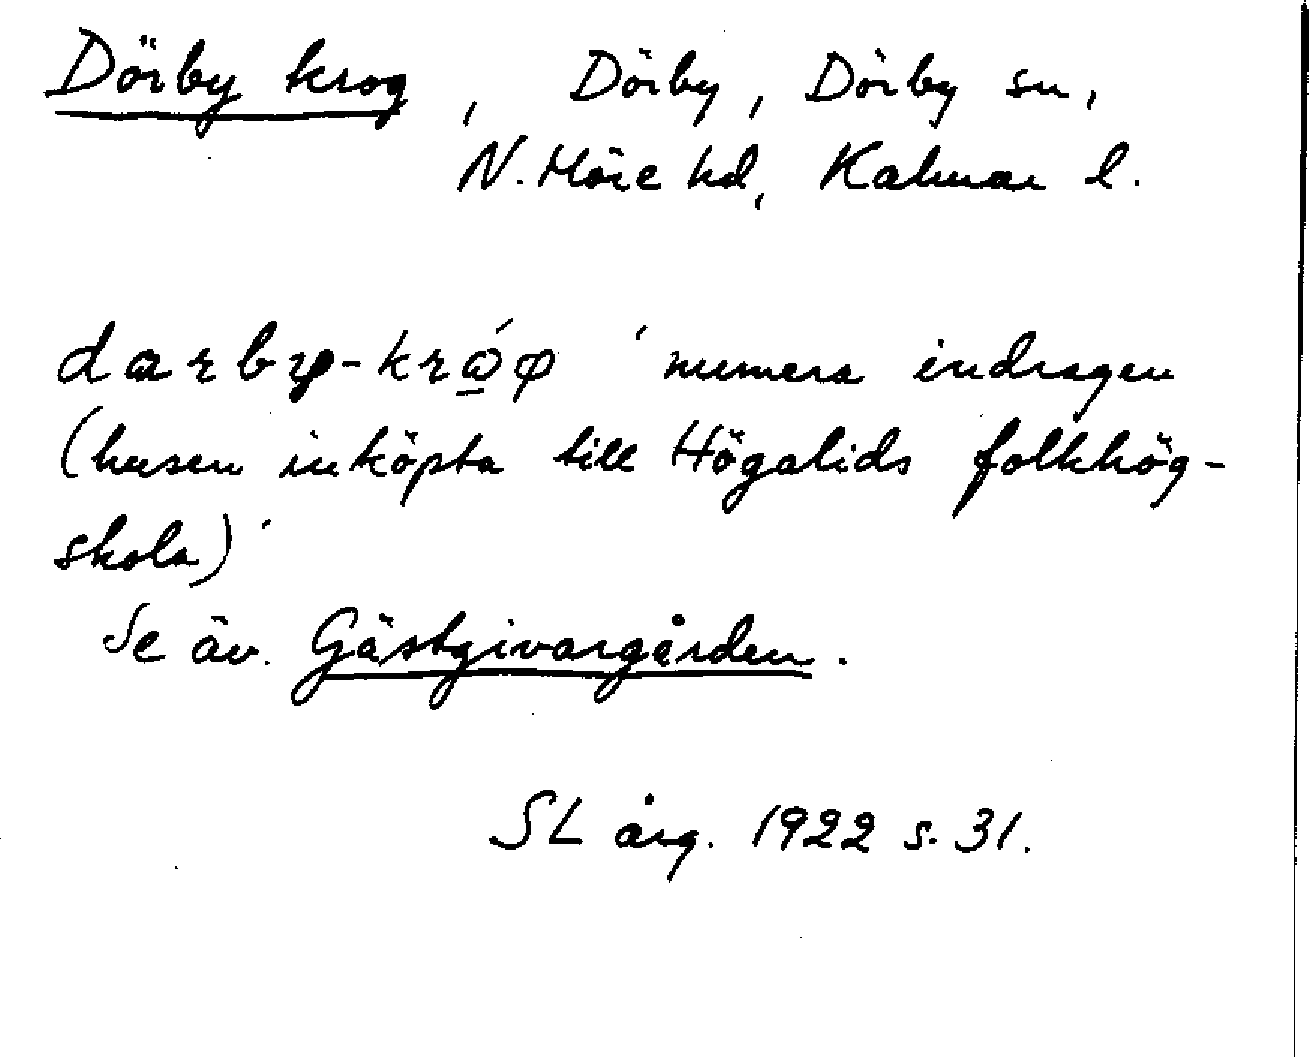 Dörby krog, Dörby, Dörby sn,
N. Möre hd, Kalmar l.
'numera indragen
(husen inköpta till Högalids folkhög-
skola)'
Se äv. Gästgivargården.
SL årg. 1922 s. 31.